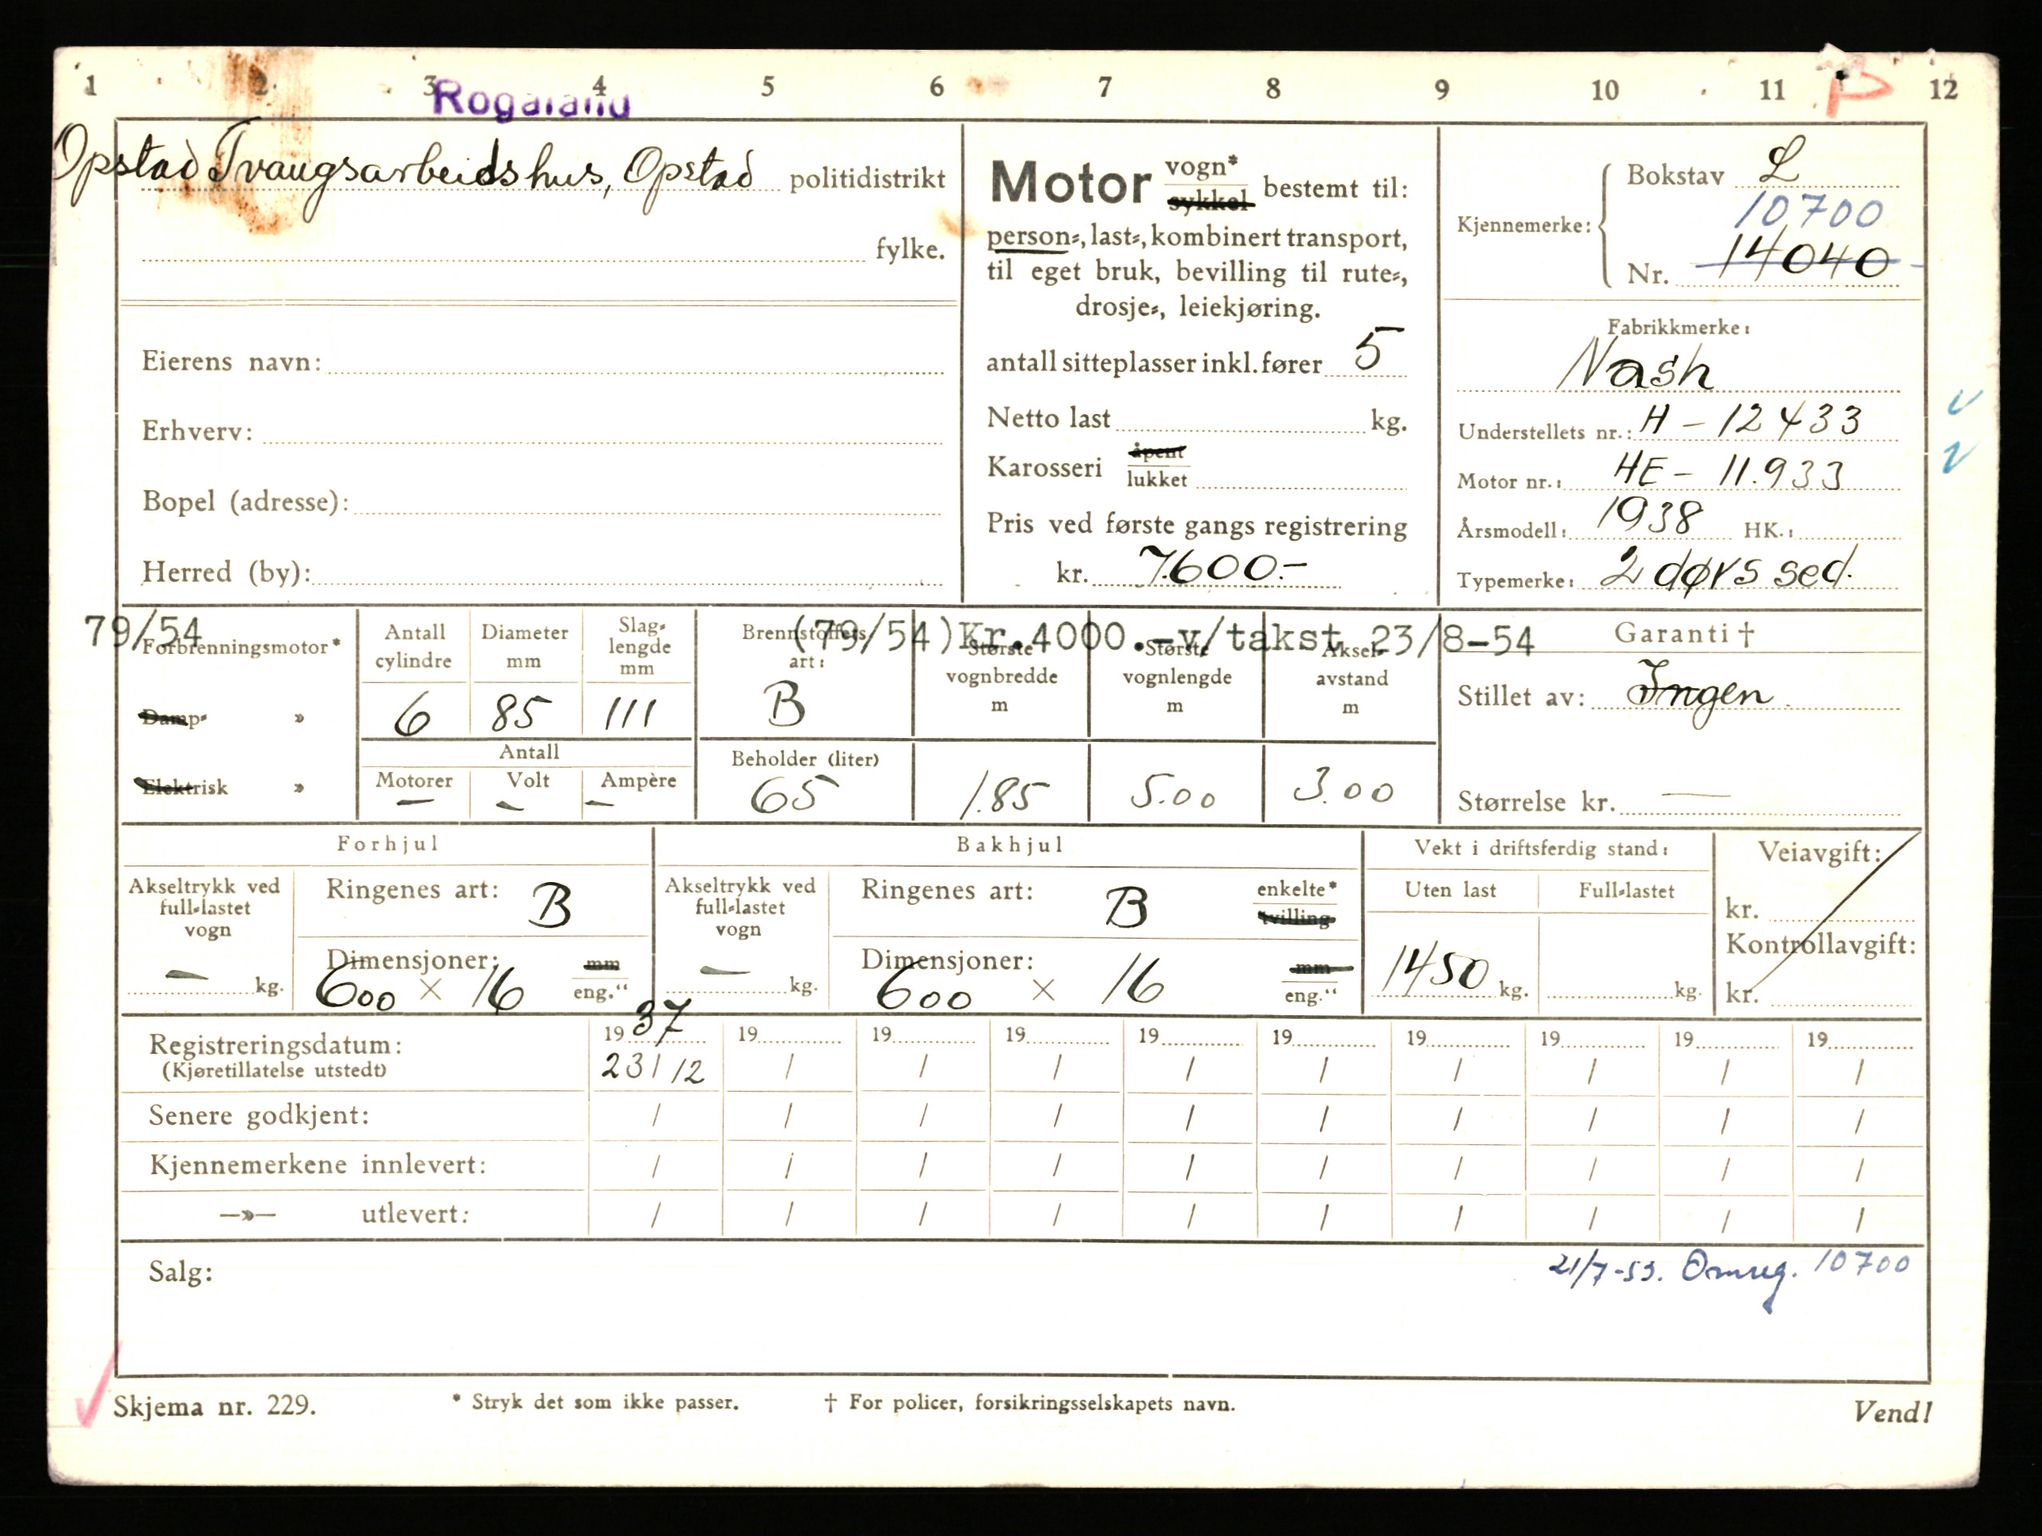 1 2 3 4 5 6 7 8 9 10 11 P 12
Rogaland
Opstad Tvangsarbeidshus, Opstad politidistrikt
fylke.
Eierens navn:
Erhverv:
Bopel (adresse):
Herred (by):
Motor vogn* sykkel bestemt til:
person-, last-, kombinert transport,
til eget bruk, bevilling til rute-,
drosje-, leiekjøring.
antall sitteplasser inkl. fører 5
Netto last kg.
Karosseri åpent lukket
Pris ved første gangs registrering
kr. 7.600.-
Bokstav L
10700
Kjennemerke:
Nr. 14040
Fabrikkmerke:
Nash
Understellets nr.: H - 12433
Motor nr.: HE - 11.933
Årsmodell: 1938 HK.:
Typemerke: 2 dørs sed.
79/54 (79/54)Kr.4000.-v/takst 23/8-54
Forbrenningsmotor*
Damp- »
Elektrisk »
Antall cylindre
6
Diameter mm
85
Slag-lengde mm
111
Antall
Motorer Volt Ampère
— — —
Brennstoffets art:
B
Beholder (liter)
65
Største vognbredde m
1.85
Største vognlengde m
5.00
Aksel-avstand m
3.00
Garanti †
Stillet av: Ingen
Størrelse kr. —
Forhjul
Akseltrykk ved full-lastet vogn
— kg.
Ringenes art: B
Dimensjoner: mm
600 × 16 eng."
Bakhjul
Akseltrykk ved full-lastet vogn
— kg.
Ringenes art: B enkelte* tvilling
Dimensjoner: mm
600 × 16 eng."
Vekt i driftsferdig stand:
Uten last Full-lastet
1450 kg. kg.
Veiavgift:
kr.
Kontrollavgift:
kr.
Registreringsdatum: 1937 19 19 19 19 19 19 19 19 19
(Kjøretillatelse utstedt) 23/12 / / / / / / / / /
Senere godkjent: / / / / / / / / / /
Kjennemerkene innlevert: / / / / / / / / / /
—»— utlevert: / / / / / / / / / /
Salg:
21/7-53. Omreg. 10700
Skjema nr. 229.
* Stryk det som ikke passer.
† For policer, forsikringsselskapets navn.
Vend!